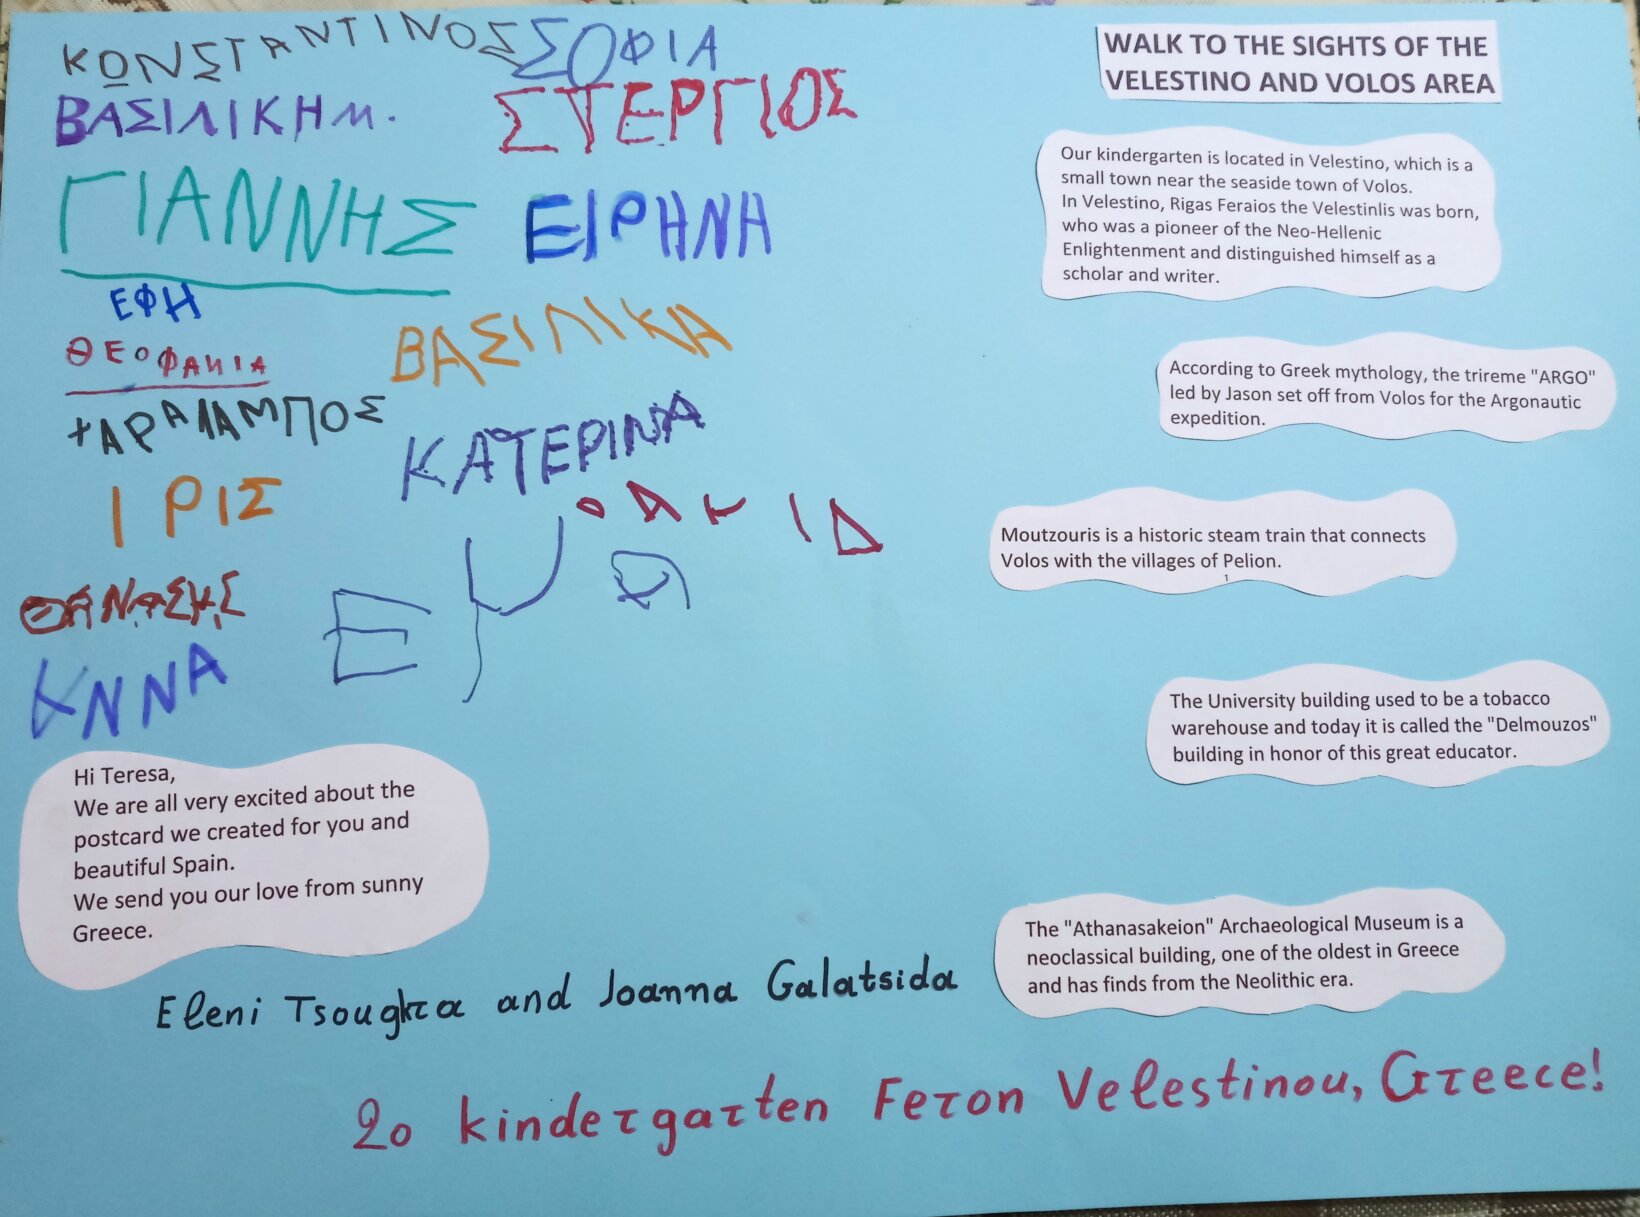 ΚΩΝΣΤΑΝΤΙΝΟΣ
ΣΟΦΙΑ
ΒΑΣΙΛΙΚΗ Μ.
ΣΤΕΡΓΙΟΣ
ΓΙΑΝΝΗΣ
ΕΙΡΗΝΗ
ΕΦΗ
ΒΑΣΙΛΙΚΑ
ΘΕΟΦΑΝΙΑ
ΧΑΡΑΛΑΜΠΟΣ
ΚΑΤΕΡΙΝΑ
ΙΡΙΣ
ΘΑΝΑΣΗΣ
ΕΥΑ
Hi Teresa,
We are all very excited about the
postcard we created for you and
beautiful Spain.
We send you our love from sunny
Greece.
WALK TO THE SIGHTS OF THE
VELESTINO AND VOLOS AREA
Our kindergarten is located in Velestino, which is a
small town near the seaside town of Volos.
In Velestino, Rigas Feraios the Velestinlis was born,
who was a pioneer of the Neo-Hellenic
Enlightenment and distinguished himself as a
scholar and writer.
According to Greek mythology, the trireme "ARGO"
led by Jason set off from Volos for the Argonautic
expedition.
Moutzouris is a historic steam train that connects
Volos with the villages of Pelion.
1
The University building used to be a tobacco
warehouse and today it is called the "Delmouzos"
building in honor of this great educator.
The "Athanasakeion" Archaeological Museum is a
neoclassical building, one of the oldest in Greece
and has finds from the Neolithic era.
Eleni Tsougkra and Joanna Galatsida
2o kindergarten Feron Velestinou, Greece!